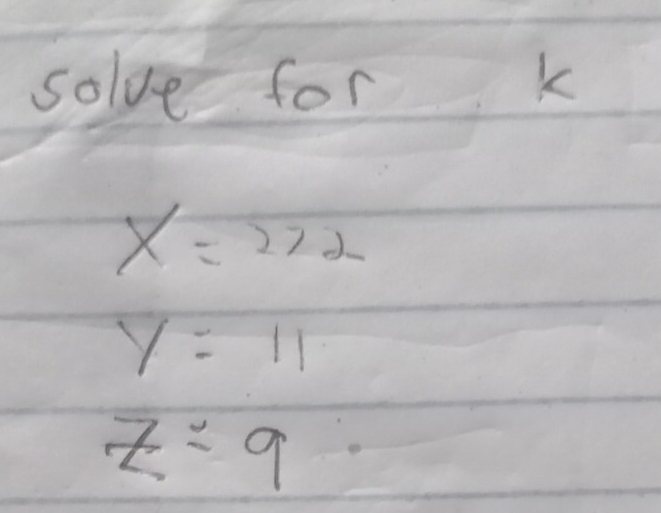 solve for k
X = 222
Y = 11
Z = 9